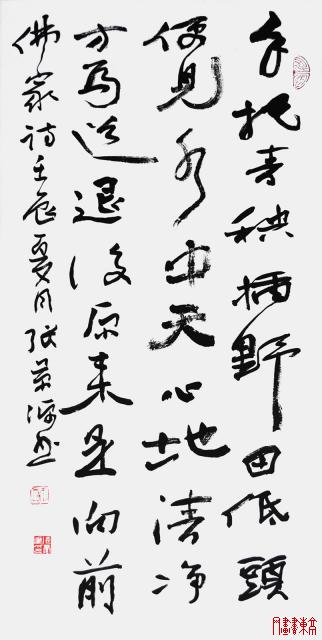 手把青秧插野田低頭
便見水中天心地清净
方為道退後原来是向前
佛家詩壬辰夏月張